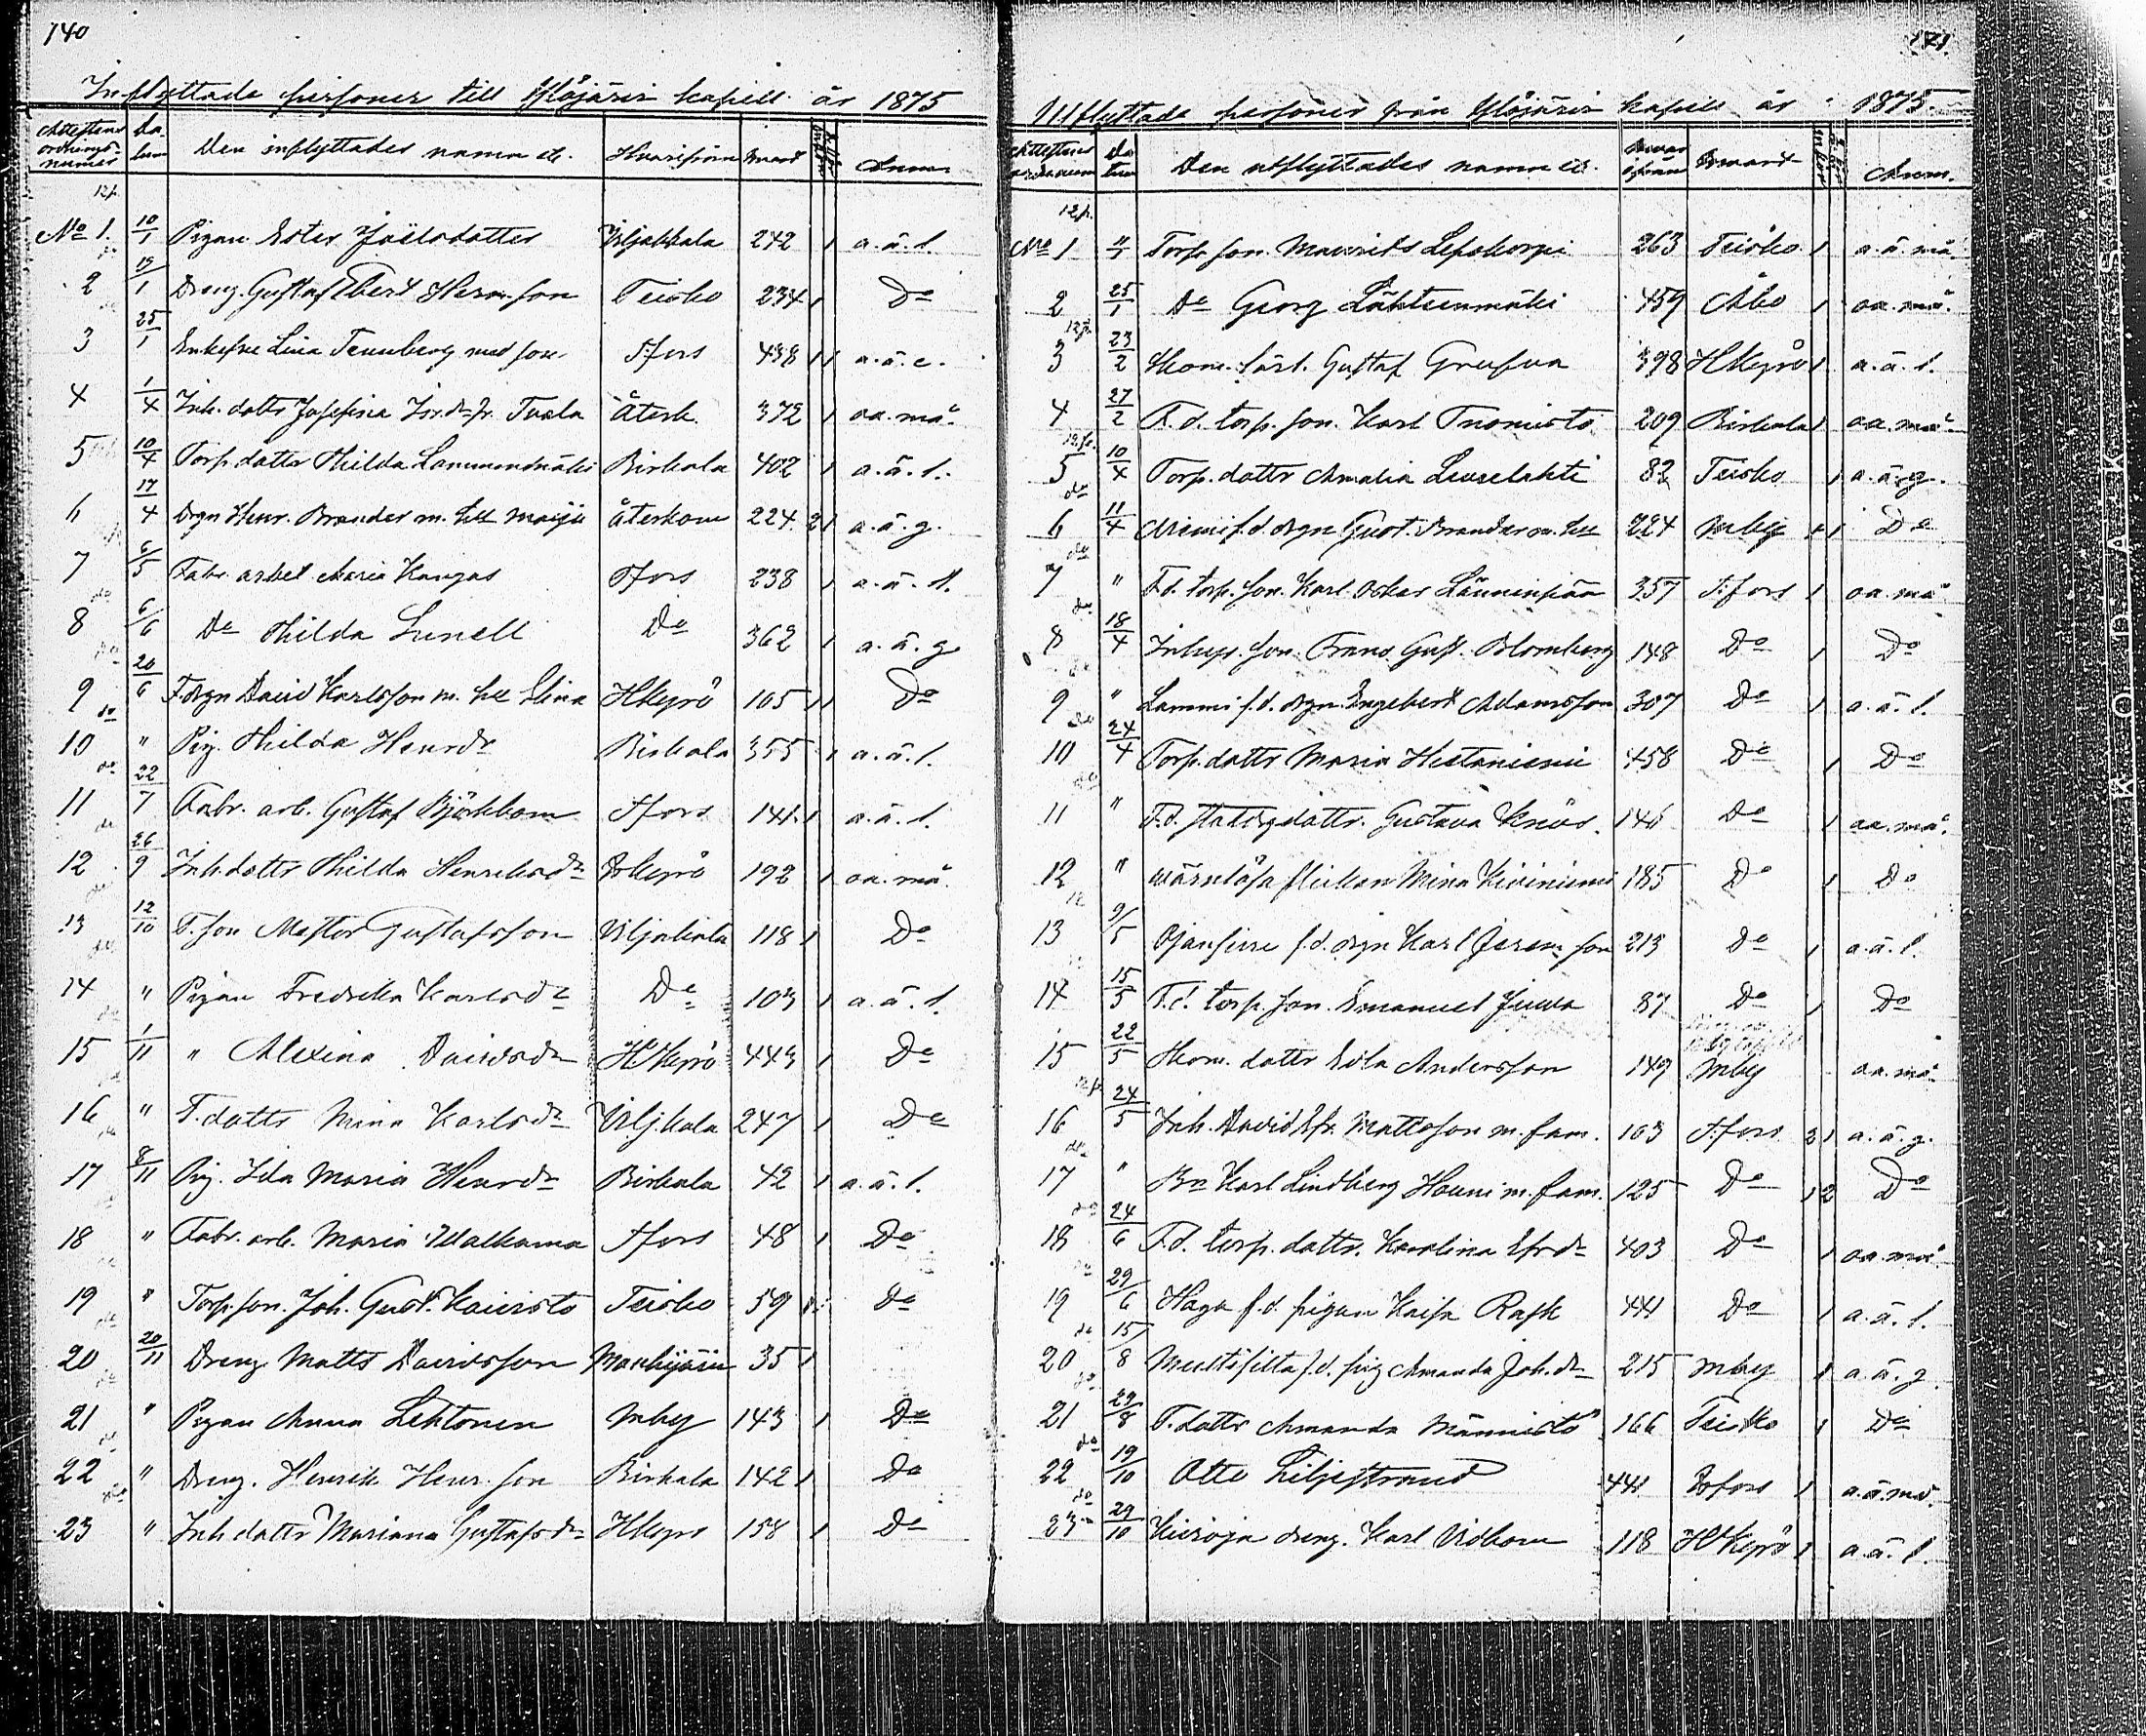 140
Inflyttade personer till Ylöjärvi kapell år 1875
Attestens ordnings- numer Da- tum Den inflyttades namn etc. Hvarifrån Hvart Anm.
12p.
No 1. 10/1 Pigan Ester Joëlsdotter Viljakkala 242 1 a.ä.l.
2 19/1 Dreng. Gustaf Ebert Herm.son Teisko 234 1 Do
3 25/1 Enkefru Lina Tennberg med son T.fors 438 1 1 a.ä.e.
4 1/4 Inh. dottr Josefina Tuola återk. 372 1 oa. må.
5 10/4 Torp. dotter Hilda Lammenmäki Birkala 402 1 a.ä.l.
6 17/4 Drgn Henr. Brander m. hu Maija återkom 224 2 1 a.ä.g.
7 6/5 Fabr. arbet. Maria Kangas Tfors 238 1 a.ä.l.
8 6/6 Do Hilda Lunell Do 362 1 a.ä.g.
9 20/6 F.drgn David Karlsson m. hu Stina HKyrö 105 1 1 Do
10 " Pig. Hilda Henrdr Birkala 355 1 a.ä.l.
11 22/7 Fabr. arb. Gustaf Björkbom Tfors 141 1 a.ä.l.
12 26/9 Inh. dottr Hilda Henriksdr Kyrö 192 1 oa. må.
13 12/10 T. son Gustafsson Viljakala 118 1 Do
14 " Pigan Fredrika Karlsdr Do 103 1 a.ä.l.
15 1/11 " Alexina Davidsdr HKyrö 443 1 Do
16 " T. dottr Mina Karlsdr Vilj.kala 247 1 Do
17 8/11 Pig. Ida Maria Henrdr Birkala 42 1 a.ä.l.
18 " Fabr. arb. Maria Walkama Tfors 48 1 Do
19 " Torp. son. Joh. Gust. Koivisto Teisko 59 Do
20 20/11 Dreng Matts Davidsson Mouhijärvi 35 1
21 " Pigan Anna Lehtonen Mby 143 1 Do
22 " Dreng. Henrik Henr. son Birkala 142 1 Do
23 " Inh dottr Mariana Gustafsdr HKyro 158 1 Do
141.
Utflyttade personer från Ylöjärvi kapell år 1875.
Attestens Da- tum Den utflyttades namn etc. Hvar- ifrån Hvart Anm.
12p.
No 1 Torp. son. Maurits Lepokorpi 263 Teisko 1 a.ä. må
2 25/1 Do Georg Lähteenmäki 459 Åbo 1 oa. må.
3 23/2 Skom. lärl. Gustaf Grufva 398 HKyrö 1 a.ä.l.
4 27/2 F. d. torp. son. Karl Tuomisto 209 Birkala 1 oa. må.
5 10/4 Torp. dottr Amalia Leuselahti 82 Teisko 1 a.ä.g.
6 11/4 f.d. drgn Gust. Brander m. hu 224 Mby 1 1 Do
7 " F.d. torp. son. Karl Oskar Länninpää 357 T.fors 1 oa. må
8 18/4 Inhys. son. Frans Gust. Blomberg 148 Do 1 Do
9 " Lammi f.d. drgn. Engelbert Adamsson 307 Do 1 a.ä.l.
10 24/4 Torp. dottr Maria Hietaniemi 458 Do 1 Do
11 " Gustava Knös. 146 Do 1 oa. må.
12 " wärnlösa flickan Mina Kiviniemi 185 Do 1 Do
13 9/5 f.d. drgn Karl Jerem. son 213 Do 1 a.ä.l.
14 15/5 F.d. torp. son. Emanuel Juwa 87 Do 1 Do
15 22/5 Skom. dottr Edla Andersson 149 Mby oa. må.
16 24/5 Inh. David Efr. Mattsson m. fam. 103 T.fors 2 1 a.ä.g.
17 " Bn Karl Lindberg m. fam. 125 Do 1 2 Do
18 24/6 F.d. torp. dottr. Karolina Efrdr 403 Do 1 oa. må
19 29/6 Haga f.d. pigan Kaisa Rask 441 Do 1 a.ä.l.
20 15/8 f.d. pig Amanda Joh.dr 215 Mby 1 a.ä.g.
21 29/8 T. dottr Amanda Männistö 166 Teisko 1 Do
22 19/10 Otto Liljestrand 441 1 a.ä.må.
23 29/10 dreng. Karl Vidbom 118 HKyrö 1 a.ä.l.
KODAK SA